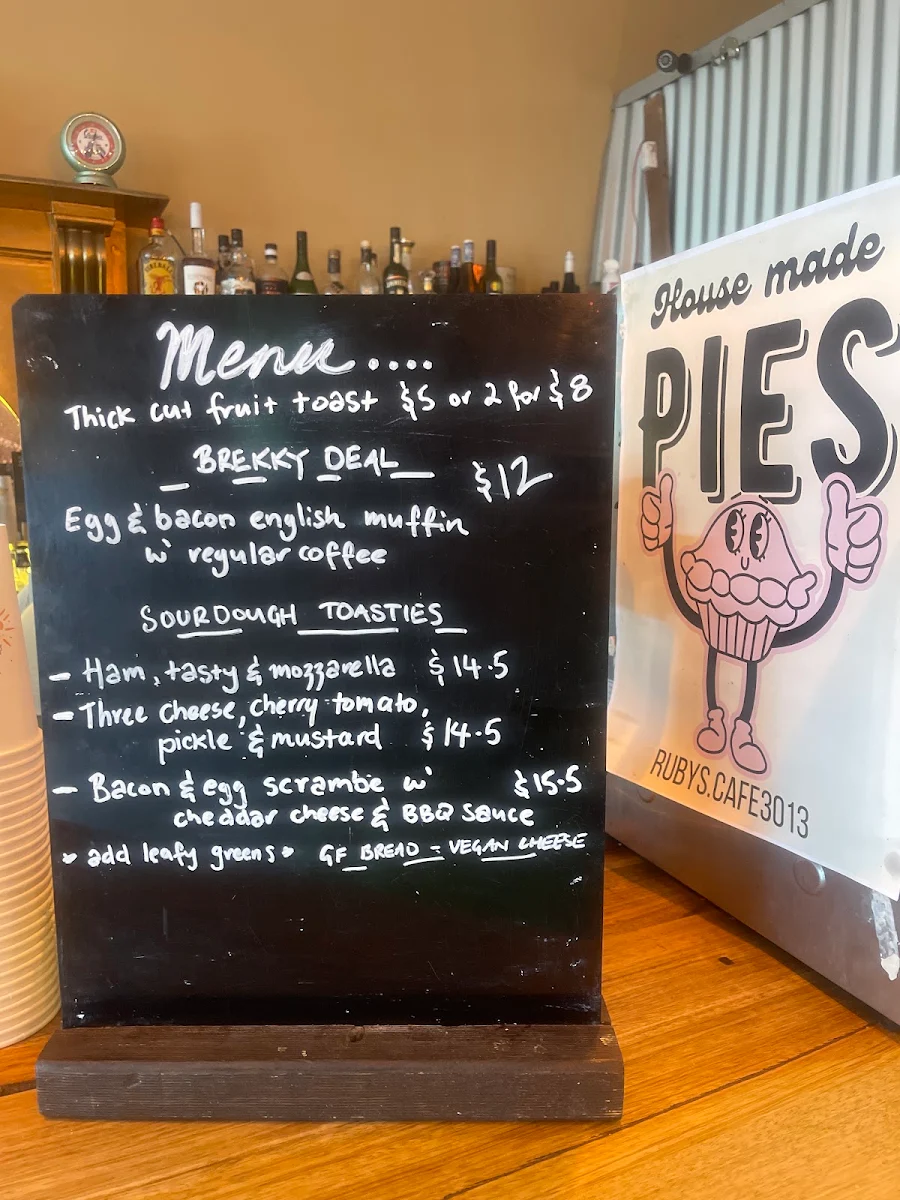 Menu....
Thick cut fruit toast $5 or 2 for $8
BREKKY DEAL $12
Egg & bacon english muffin
w' regular coffee
SOURDOUGH TOASTIES
- Ham, tasty & mozzarella $14.5
- Three cheese, cherry tomato,
pickle & mustard $14.5
- Bacon & egg scramble w' $15.5
cheddar cheese & BBQ sauce
* add leafy greens * GF BREAD - VEGAN CHEESE
House made
PIES
RUBYS.CAFE3013